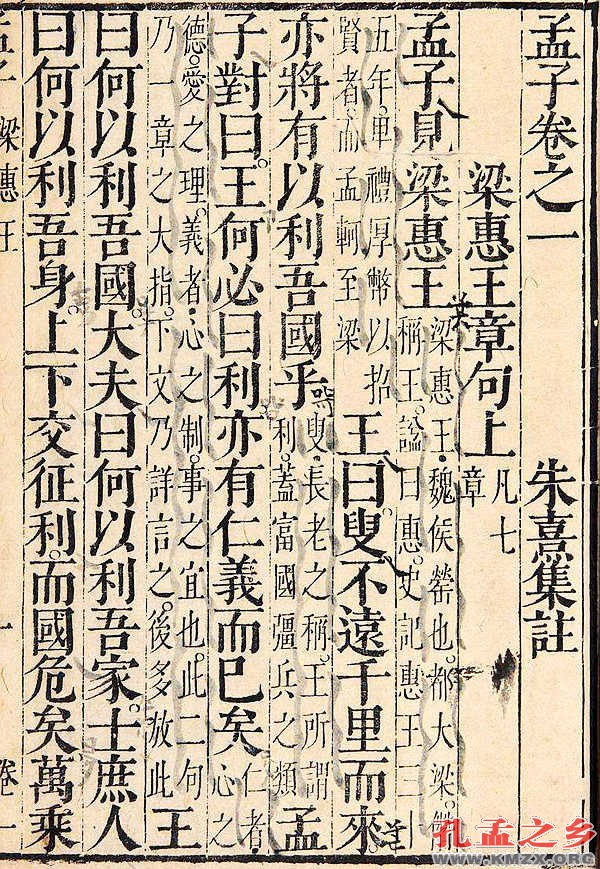 孟子卷之一 朱熹集註
梁惠王章句上 凡七章
孟子見梁惠王
梁惠王·魏侯罃也。都大梁。僭
稱王。謚曰惠。史記惠王三
五年。卑禮厚幣以招
賢者。而孟軻至梁
王曰。叟不遠千里而來。
亦將有以利吾國乎
叟·長老之稱。王所謂
利。蓋富國彊兵之類
孟
子對曰。王何必曰利亦有仁義而已矣
仁者
心之
德。愛之理。義者·心之制。事之宜也。此二句
乃一章之大指。下文乃詳言之。後多放此
王
曰何以利吾國。大夫曰何以利吾家。士庶人
曰何以利吾身。上下交征利。而國危矣。萬乘
孟子 梁惠王 一 卷一
孔孟之乡
WWW.KMZX.ORG